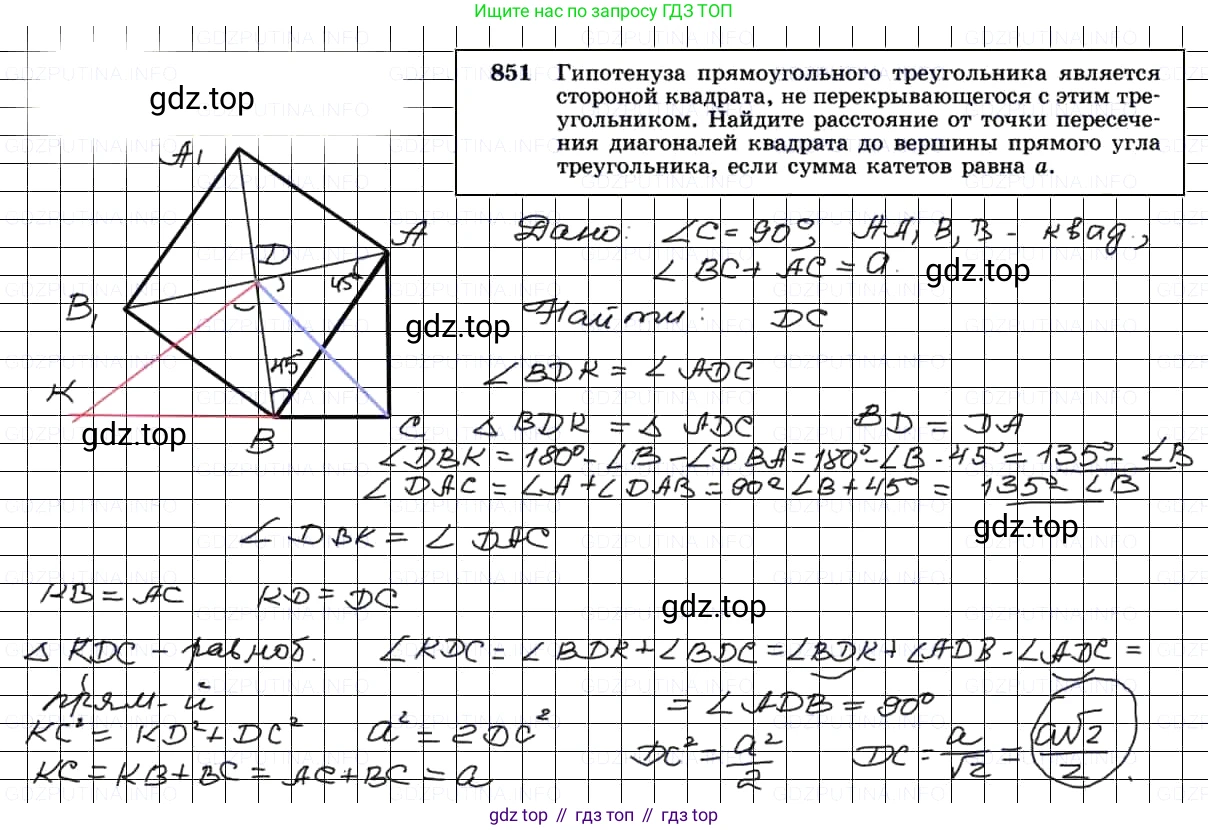 Ищите нас по запросу ГДЗ ТОП
gdz.top
851 Гипотенуза прямоугольного треугольника является
стороной квадрата, не перекрывающегося с этим тре-
угольником. Найдите расстояние от точки пересече-
ния диагоналей квадрата до вершины прямого угла
треугольника, если сумма катетов равна a.
A₁
A
D
45°
B₁
45°
K
B
C
gdz.top
gdz.top
Дано: ∠C = 90°, AA₁B₁B - квад.,
∠BC + AC = a.
gdz.top
Найти: DC
∠BDK = ∠ADC
△BDK = △ADC BD = DA
∠DBK = 180° - ∠B - ∠DBA = 180° - ∠B - 45° = 135° - ∠B
∠DAC = ∠A + ∠DAB = 90° - ∠B + 45° = 135° - ∠B
gdz.top
∠DBK = ∠DAC
KB = AC KD = DC
gdz.top
△KDC - равноб. ∠KDC = ∠BDK + ∠BDC = ∠BDK + ∠ADB - ∠ADC =
прям-й
= ∠ADB = 90°
KC² = KD² + DC² a² = 2DC²
DC² = a²/2 DC = a/√2 = a√2/2.
KC = KB + BC = AC + BC = a
gdz.top // гдз топ // gdz.top